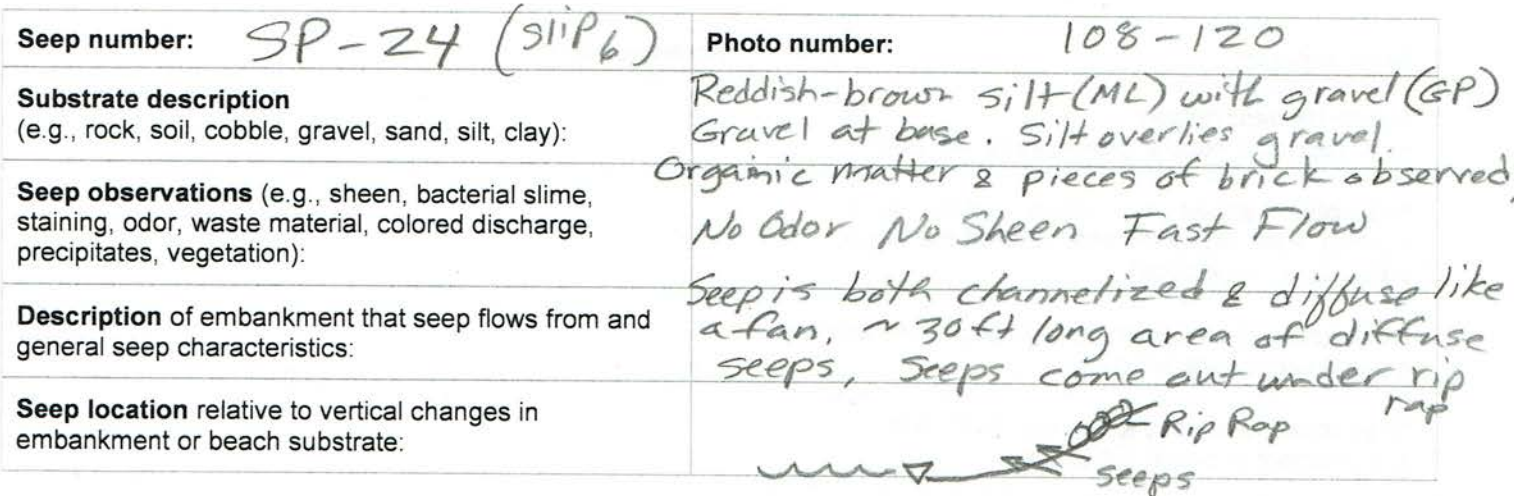 Seep number: SP-24 (Slip 6)
Photo number: 108-120
Substrate description
(e.g., rock, soil, cobble, gravel, sand, silt, clay):
Reddish-brown silt (ML) with gravel (GP)
Gravel at base. Silt overlies gravel.
Organic matter & pieces of brick observed,
Seep observations (e.g., sheen, bacterial slime,
staining, odor, waste material, colored discharge,
precipitates, vegetation):
No Odor No Sheen Fast Flow
Description of embankment that seep flows from and
general seep characteristics:
Seep is both channelized & diffuse like
a fan, ~ 30 ft long area of diffuse
seeps, Seeps come out under rip
rap
Seep location relative to vertical changes in
embankment or beach substrate:
Rip Rap
seeps